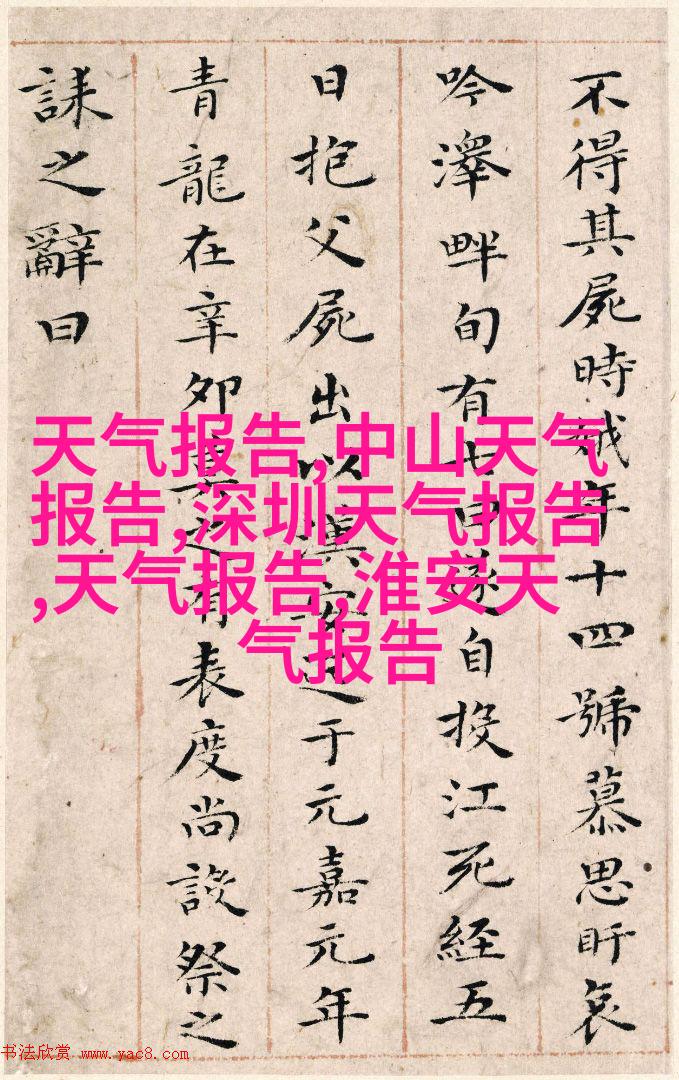 不得其屍時娥年十四號慕思盱哀
吟澤畔旬有七日遂自投江死經五
日抱父屍出以漢安迄于元嘉元年
青龍在辛卯莫之有表度尚設祭之
誄之辭曰
天气报告,中山天气
报告,深圳天气报告
,天气报告,淮安天
气报告
书法欣赏 www.yac8.com